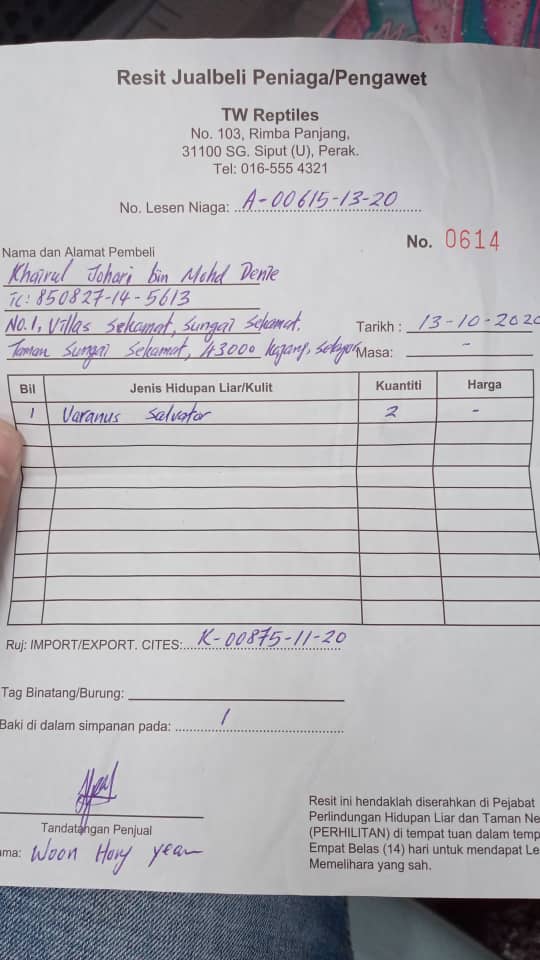 Resit Jualbeli Peniaga/Pengawet
TW Reptiles
No. 103, Rimba Panjang,
31100 SG. Siput (U), Perak.
Tel: 016-555 4321
No. Lesen Niaga: A-00615-13-20
No. 0614
Nama dan Alamat Pembeli
Khairul Johari bin Mohd Denie
ic: 850827-14-5613
No.1, Villas Sekamat, Sungai Sekamat.
Tarikh : 13-10-2020
Taman Sungai Sekamat, 43000 Kajang, Selayor
Masa: -
Bil Jenis Hidupan Liar/Kulit Kuantiti Harga
1 Varanus Salvator 2 -
Ruj: IMPORT/EXPORT. CITES: K-00875-11-20
Tag Binatang/Burung:
Baki di dalam simpanan pada: 1
Tandatangan Penjual
ama: Woon Hory yean
Resit ini hendaklah diserahkan di Pejabat
Perlindungan Hidupan Liar dan Taman Ne
(PERHILITAN) di tempat tuan dalam temp
Empat Belas (14) hari untuk mendapat Le
Memelihara yang sah.